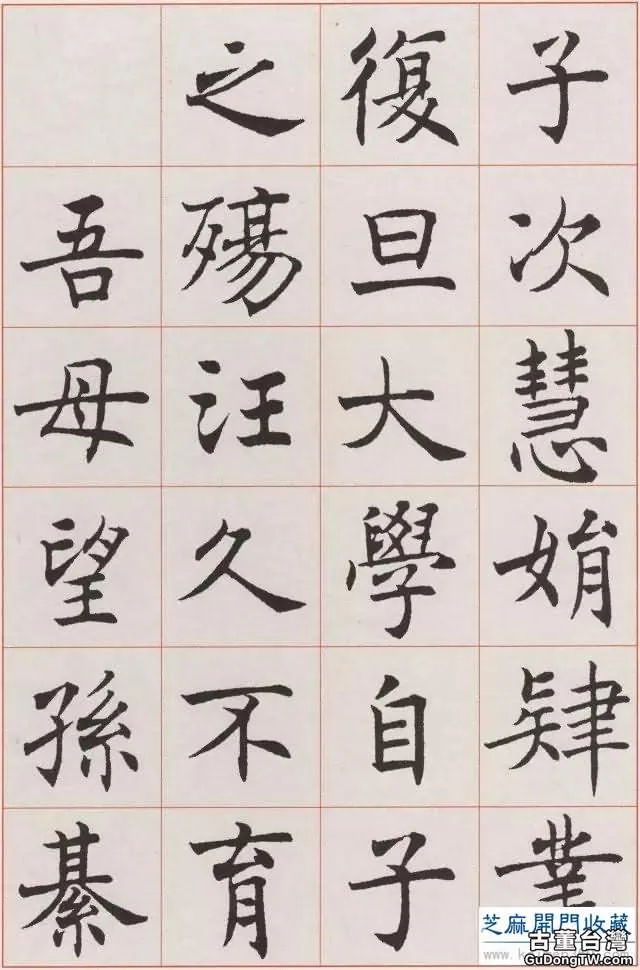 子次慧娟肄業
復旦大學自子
之殤汪久不育
吾母望孫綦
芝麻開門收藏
古董台灣
GuDongTW.com